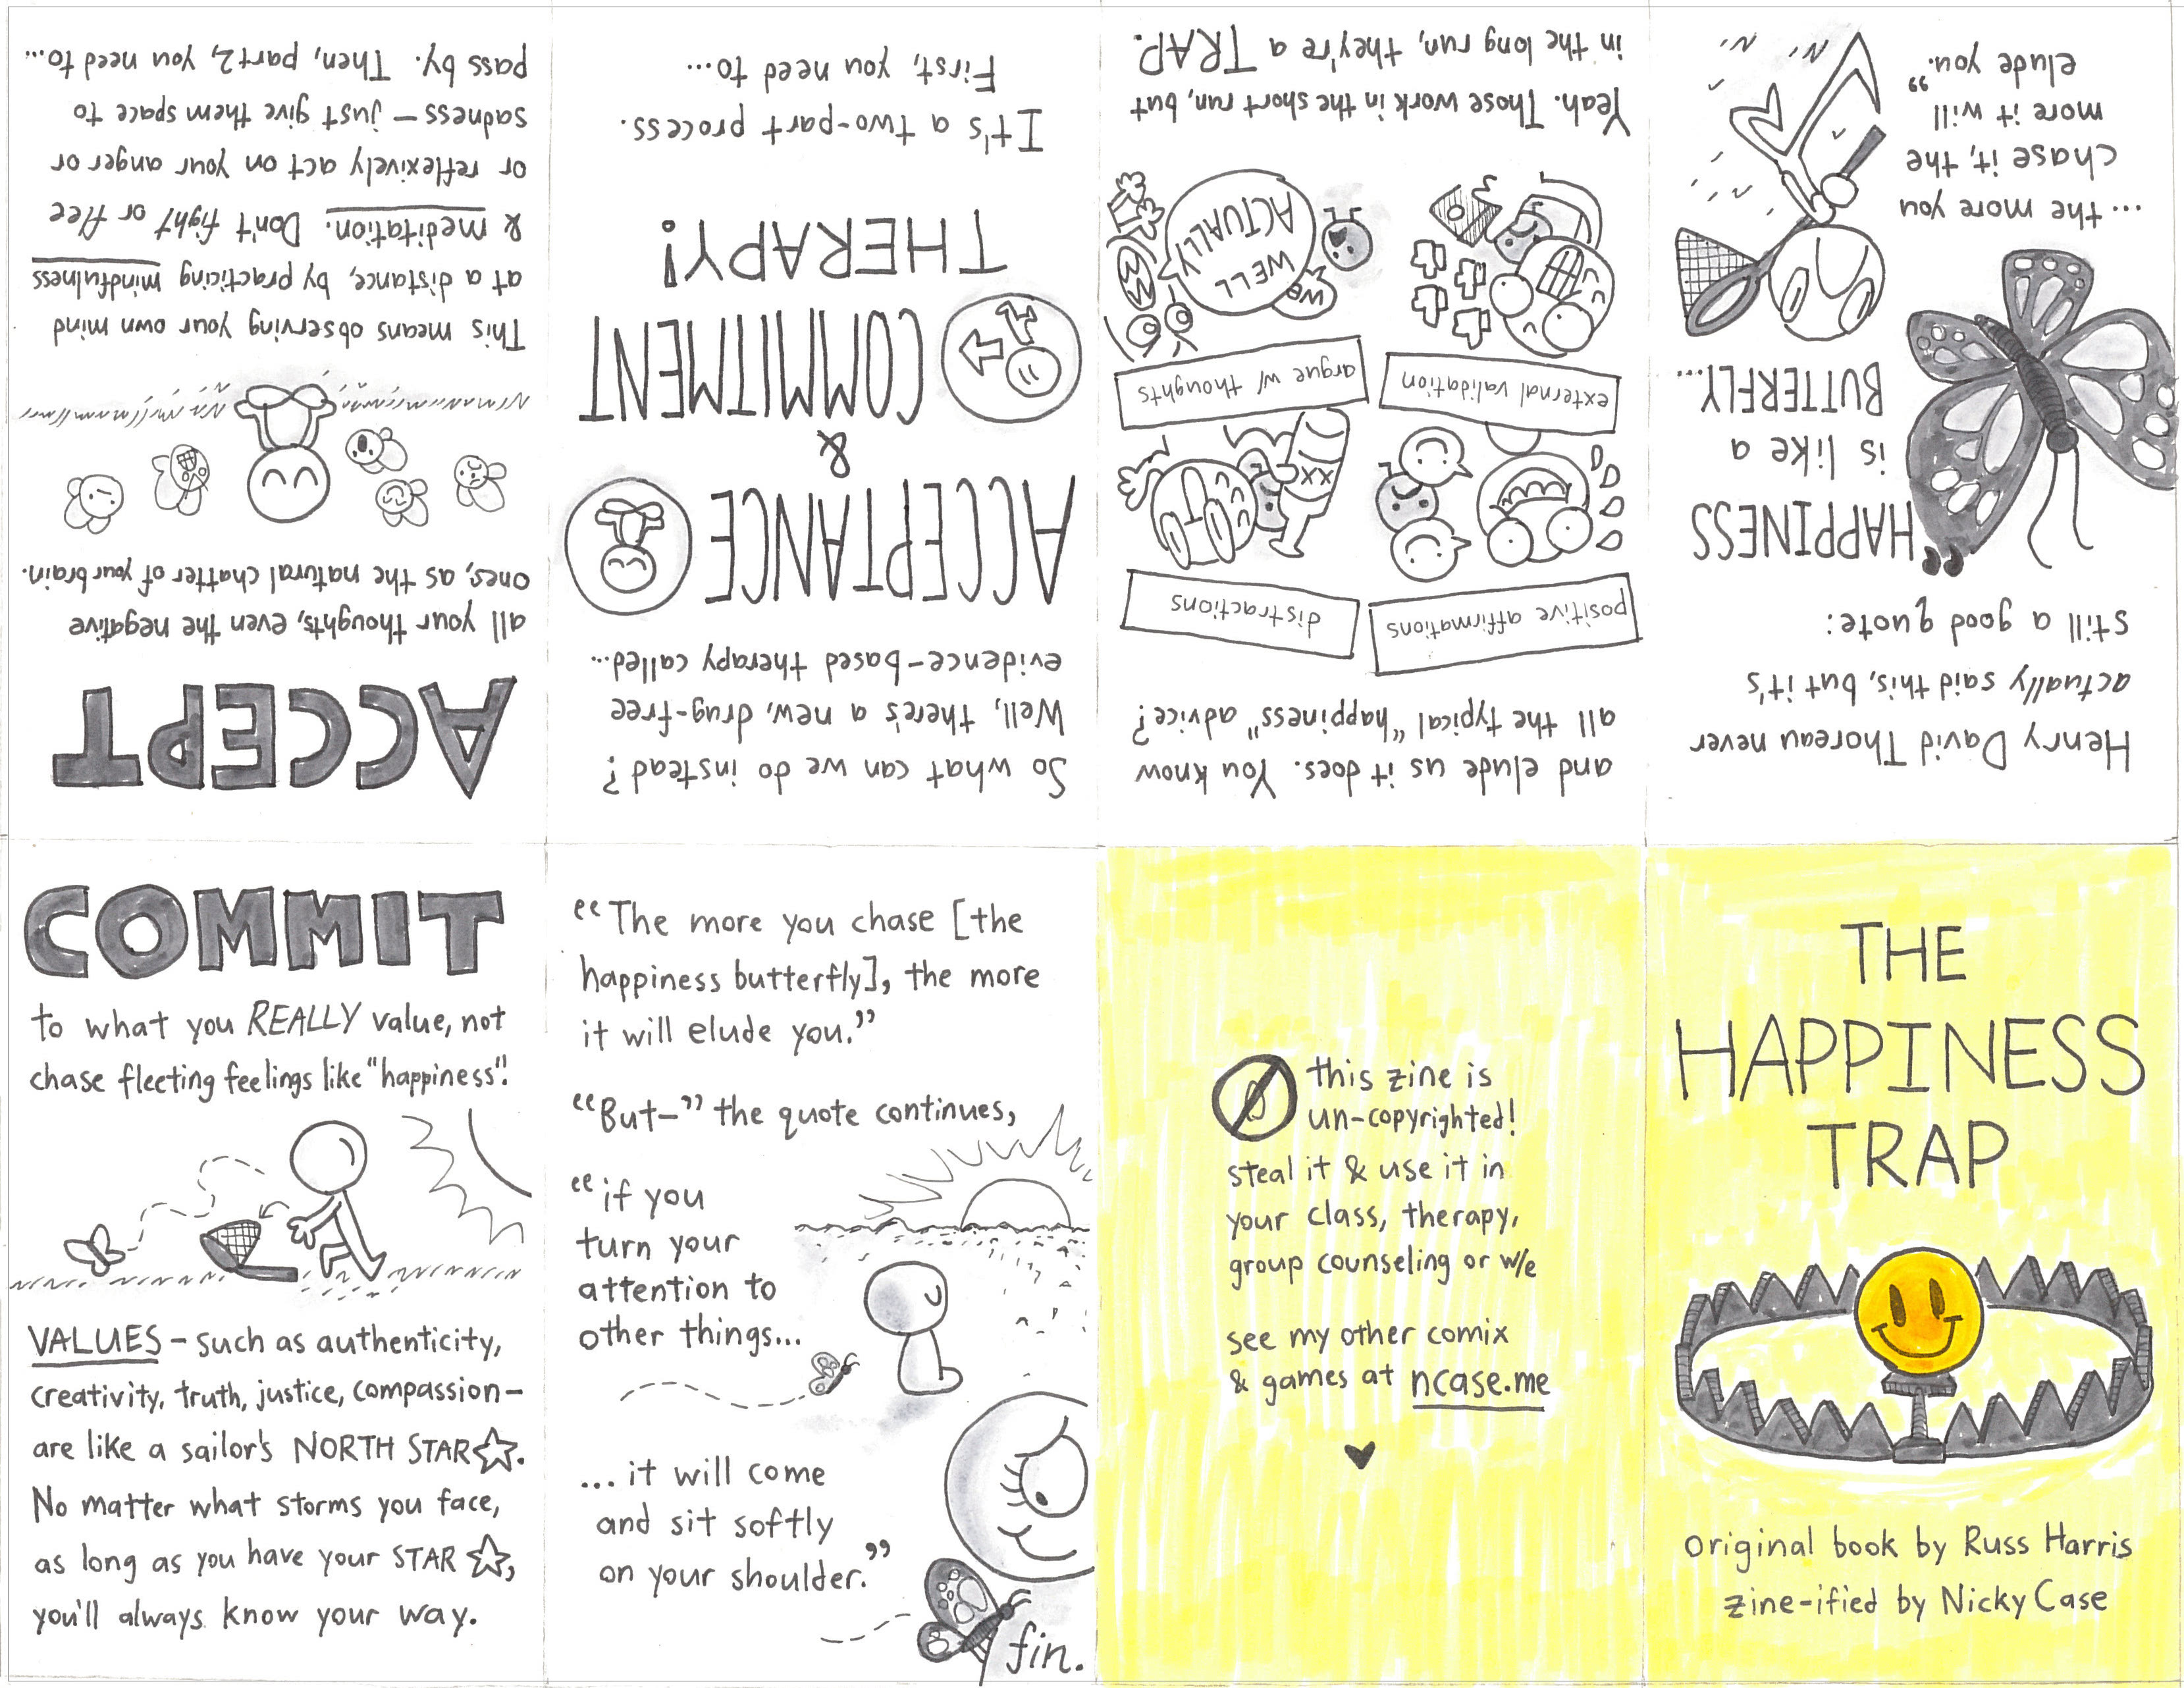 THE
HAPPINESS
TRAP
original book by Russ Harris
zine-ified by Nicky Case
Henry David Thoreau never
actually said this, but it's
still a good quote:
"HAPPINESS
is like a
BUTTERFLY...
...the more you
chase it, the
more it will
elude you."
and elude us it does. You know
all the typical "happiness" advice?
positive affirmations
distractions
external validation
argue w/ thoughts
We
WELL
ACTUALLY
Yeah. Those work in the short run, but
in the long run, they're a TRAP.
So what can we do instead?
Well, there's a new, drug-free
evidence-based therapy called...
ACCEPTANCE
&
COMMITMENT
THERAPY!
It's a two-part process.
First, you need to...
ACCEPT
all your thoughts, even the negative
ones, as the natural chatter of your brain.
This means observing your own mind
at a distance, by practicing mindfulness
& meditation. Don't fight or flee
or reflexively act on your anger or
sadness – just give them space to
pass by. Then, part 2, you need to...
COMMIT
to what you REALLY value, not
chase fleeting feelings like "happiness".
VALUES – such as authenticity,
creativity, truth, justice, compassion –
are like a sailor's NORTH STAR☆.
No matter what storms you face,
as long as you have your STAR ☆,
you'll always know your way.
"The more you chase [the
happiness butterfly], the more
it will elude you."
"But–" the quote continues,
"if you
turn your
attention to
other things...
...it will come
and sit softly
on your shoulder."
fin.
this zine is
un-copyrighted!
steal it & use it in
your class, therapy,
group counseling or w/e
see my other comix
& games at ncase.me